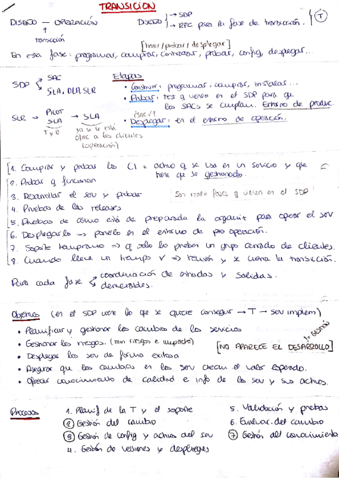 TRANSICIÓN
DISEÑO → OPERACIÓN
transición
DISEÑO → SDP
→ RFC para la fase de transición.
T
[test / probar / desplegar]
En esa fase: programar, comprar, contratar, probar, config, desplegar...
SDP → SAC
SLA, OLA, SLR
Etapas
• Construir: programar, comprar, instalar...
• Probar: test q vienen en el SDP para que
los SACs se cumplan. Entorno de prueba
SLR → PILOT SLA → SLA
T y R
ya se le está
(operación)
• Desplegar: en el entorno de operación.
1. Comprar y probar los CI = activo q se usa en un servicio y que
tiene que ser gestionado.
2. Probar q funcionan
3. Desarrollar el serv y probar
4. Pruebas de las releases
5. Pruebas de cómo está de preparada la organiz para operar el serv
6. Desplegarlo → ponerlo en el entorno de pre operación.
7. Soporte temprano → q solo lo prueban un grupo cerrado de clientes.
8. Cuando lleve un tiempo V → revisión y se cierra la transición.
Para cada fase → coordinación de entradas y salidas.
Objetivos (en el SDP viene lo que se quiere conseguir → T → serv implem)
• Planificar y gestionar los cambios de los servicios
• Gestionar los riesgos. (son riesgos e impacto)
[NO APARECE EL DESARROLLO]
• Desplegar los serv de forma exitosa
• Asegurar que los cambios en los serv crean el valor esperado.
• Ofrecer conocimiento de calidad e info de los serv y sus activos.
Procesos
1. Planif de la T y el soporte
2 Gestión del cambio
3 Gestión de config y activos del serv
4. Gestión de versiones y despliegues
5. Validación y pruebas
6. Evaluac. del cambio
7 Gestión del conocimiento